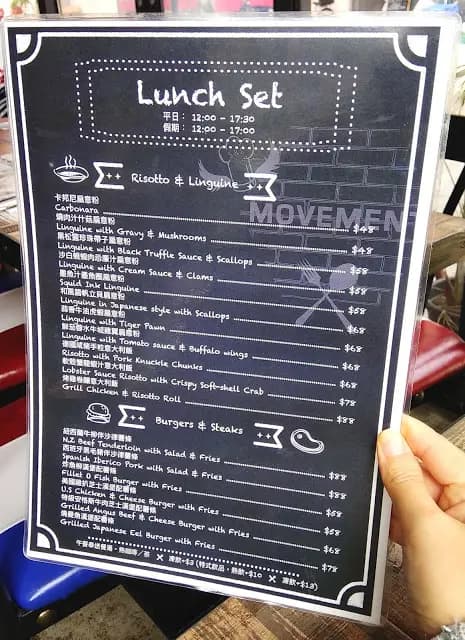 Lunch Set
平日: 12:00 - 17:30
假期: 12:00 - 17:00
Risotto & Linguine
MOVEMENT
卡邦尼扁意粉
Carbonara $48
燒肉汁什菇扁意粉
Linguine with Gravy & Mushrooms $48
黑松露珍珠帶子扁意粉
Linguine with Black Truffle Sauce & Scallops $58
沙白蜆蜆肉忌廉汁扁意粉
Linguine with Cream Sauce & Clams $58
墨魚汁墨魚圈扁意粉
Squid Ink Linguine $58
和風醬帆立貝扁意粉
Linguine in Japanese style with Scallops $68
蒜香牛油虎蝦扁意粉
Linguine with Tiger Pawn $68
鮮茄醬水牛城雞翼扁意粉
Linguine with Tomato sauce & Buffalo wings $68
德國咸豬手粒意大利飯
Risotto with Pork Knuckle Chunks $68
軟殼蟹龍蝦汁意大利飯
Lobster Sauce Risotto with Crispy Soft-shell Crab $78
烤雞卷意大利飯
Grill Chicken & Risotto Roll $88
Burgers & Steaks
紐西蘭牛柳伴沙律薯條
N.Z Beef Tenderloin with Salad & Fries $88
西班牙黑毛豬伴沙律薯條
Spanish Iberico Pork with Salad & Fries $88
炸魚柳漢堡配薯條
Fillet O Fish Burger with Fries $58
美國雞扒芝士漢堡配薯條
U.S Chicken & Cheese Burger with Fries $58
特級安格斯牛肉芝士漢堡配薯條
Grilled Angus Beef & Cheese Burger with Fries $68
燒鰻魚漢堡配薯條
Grilled Japanese Eel Burger with Fries $78
午餐奉送餐湯, 熱咖啡/茶 × 凍飲+$3 (特式飲品, 熱飲+$10 × 凍飲+$13)